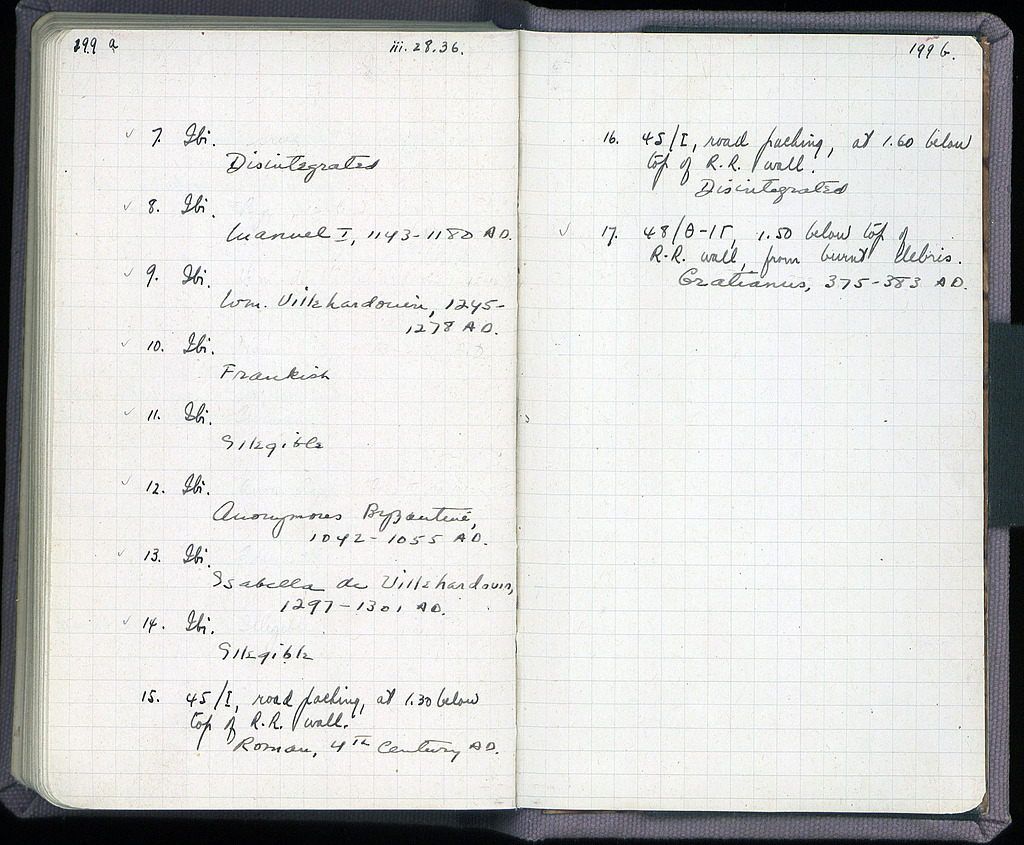 199 a
iii. 28.36.
7. Ibi.
Disintegrated
8. Ibi.
Manuel I, 1143-1180 AD.
9. Ibi.
Wm. Villehardouin, 1245-
1278 AD.
10. Ibi.
Frankish
11. Ibi.
Illegible
12. Ibi.
Anonymous Byzantine,
1042-1055 AD.
13. Ibi.
Isabella de Villehardouin,
1297-1301 AD.
14. Ibi.
Illegible
15. 45/I, road packing, at 1.30 below
top of R.R. wall.
Roman, 4th Century AD.
199 b.
16. 45/I, road packing, at 1.60 below
top of R.R. wall.
Disintegrated
17. 48/Θ-ΙΓ, 1.50 below top of
R.R. wall, from burnt debris.
Gratianus, 375-383 AD.